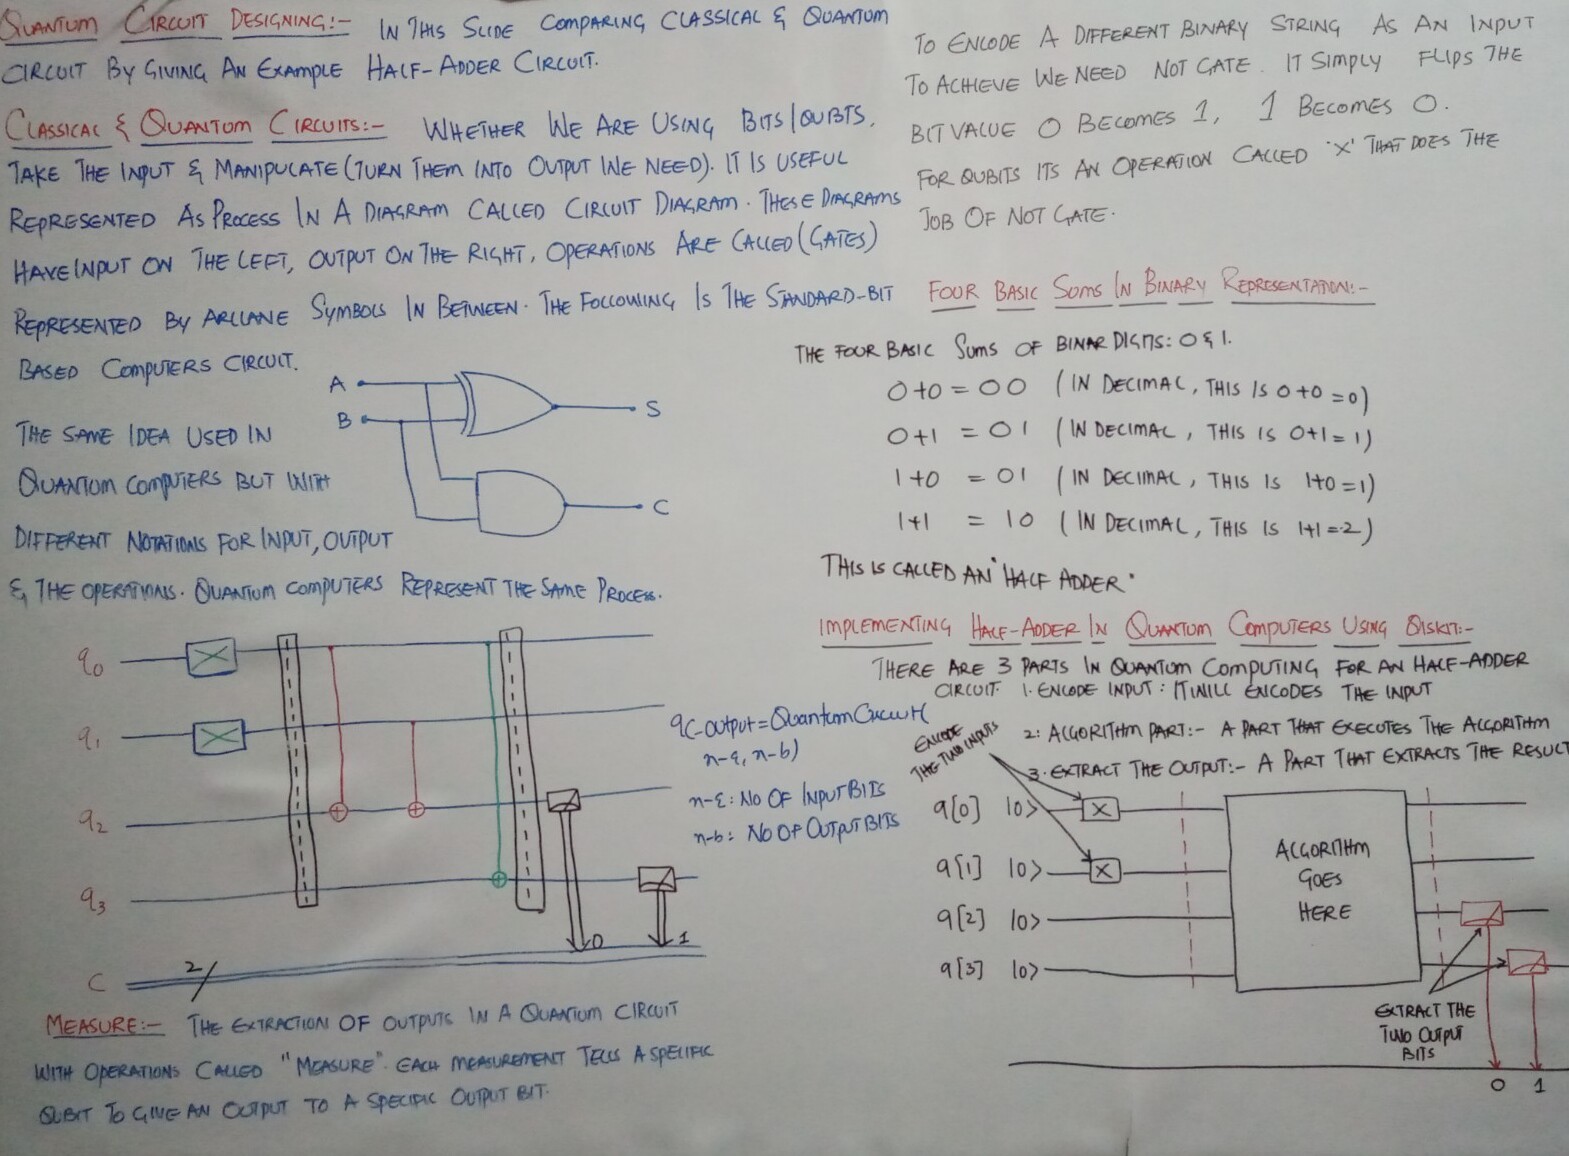 QUANTUM CIRCUIT DESIGNING:- IN THIS SLIDE COMPARING CLASSICAL & QUANTUM
CIRCUIT BY GIVING AN EXAMPLE HALF-ADDER CIRCUIT.
CLASSICAL & QUANTUM CIRCUITS:- WHETHER WE ARE USING BITS/QUBTS,
TAKE THE INPUT & MANIPULATE (TURN THEM INTO OUTPUT WE NEED). IT IS USEFUL
REPRESENTED AS PROCESS IN A DIAGRAM CALLED CIRCUIT DIAGRAM. THESE DIAGRAMS
HAVE INPUT ON THE LEFT, OUTPUT ON THE RIGHT, OPERATIONS ARE CALLED (GATES)
REPRESENTED BY ARCLANE SYMBOLS IN BETWEEN. THE FOLLOWING IS THE STANDARD-BIT
BASED COMPUTERS CIRCUIT.
A
B
S
C
THE SAME IDEA USED IN
QUANTUM COMPUTERS BUT WITH
DIFFERENT NOTATIONS FOR INPUT, OUTPUT
& THE OPERATIONS. QUANTUM COMPUTERS REPRESENT THE SAME PROCESS.
q0
q1
q2
q3
C
2
0
1
qc-output = QuantumCircuit(
n-q, n-b)
n-q: NO OF INPUT BITS
n-b: NO OF OUTPUT BITS
MEASURE:- THE EXTRACTION OF OUTPUTS IN A QUANTUM CIRCUIT
WITH OPERATIONS CALLED "MEASURE". EACH MEASUREMENT TELLS A SPECIFIC
QUBIT TO GIVE AN OUTPUT TO A SPECIFIC OUTPUT BIT.
TO ENCODE A DIFFERENT BINARY STRING AS AN INPUT
TO ACHIEVE WE NEED NOT GATE. IT SIMPLY FLIPS THE
BIT VALUE 0 BECOMES 1, 1 BECOMES 0.
FOR QUBITS ITS AN OPERATION CALLED 'X' THAT DOES THE
JOB OF NOT GATE.
FOUR BASIC SUMS IN BINARY REPRESENTATION:-
THE FOUR BASIC SUMS OF BINAR DIGITS: 0 & 1.
0+0 = 00 (IN DECIMAL, THIS IS 0+0=0)
0+1 = 01 (IN DECIMAL, THIS IS 0+1=1)
1+0 = 01 (IN DECIMAL, THIS IS 1+0=1)
1+1 = 10 (IN DECIMAL, THIS IS 1+1=2)
THIS IS CALLED AN 'HALF ADDER'
IMPLEMENTING HALF-ADDER IN QUANTUM COMPUTERS USING QISKIT:-
THERE ARE 3 PARTS IN QUANTUM COMPUTING FOR AN HALF-ADDER
CIRCUIT. 1. ENCODE INPUT: IT WILL ENCODES THE INPUT
2: ALGORITHM PART:- A PART THAT EXECUTES THE ALGORITHM
3. EXTRACT THE OUTPUT:- A PART THAT EXTRACTS THE RESULT
ENCODE
THE TWO INPUTS
q[0] |0> X
q[1] |0> X
q[2] |0>
q[3] |0>
ALGORITHM
GOES
HERE
EXTRACT THE
TWO OUTPUT
BITS
0 1